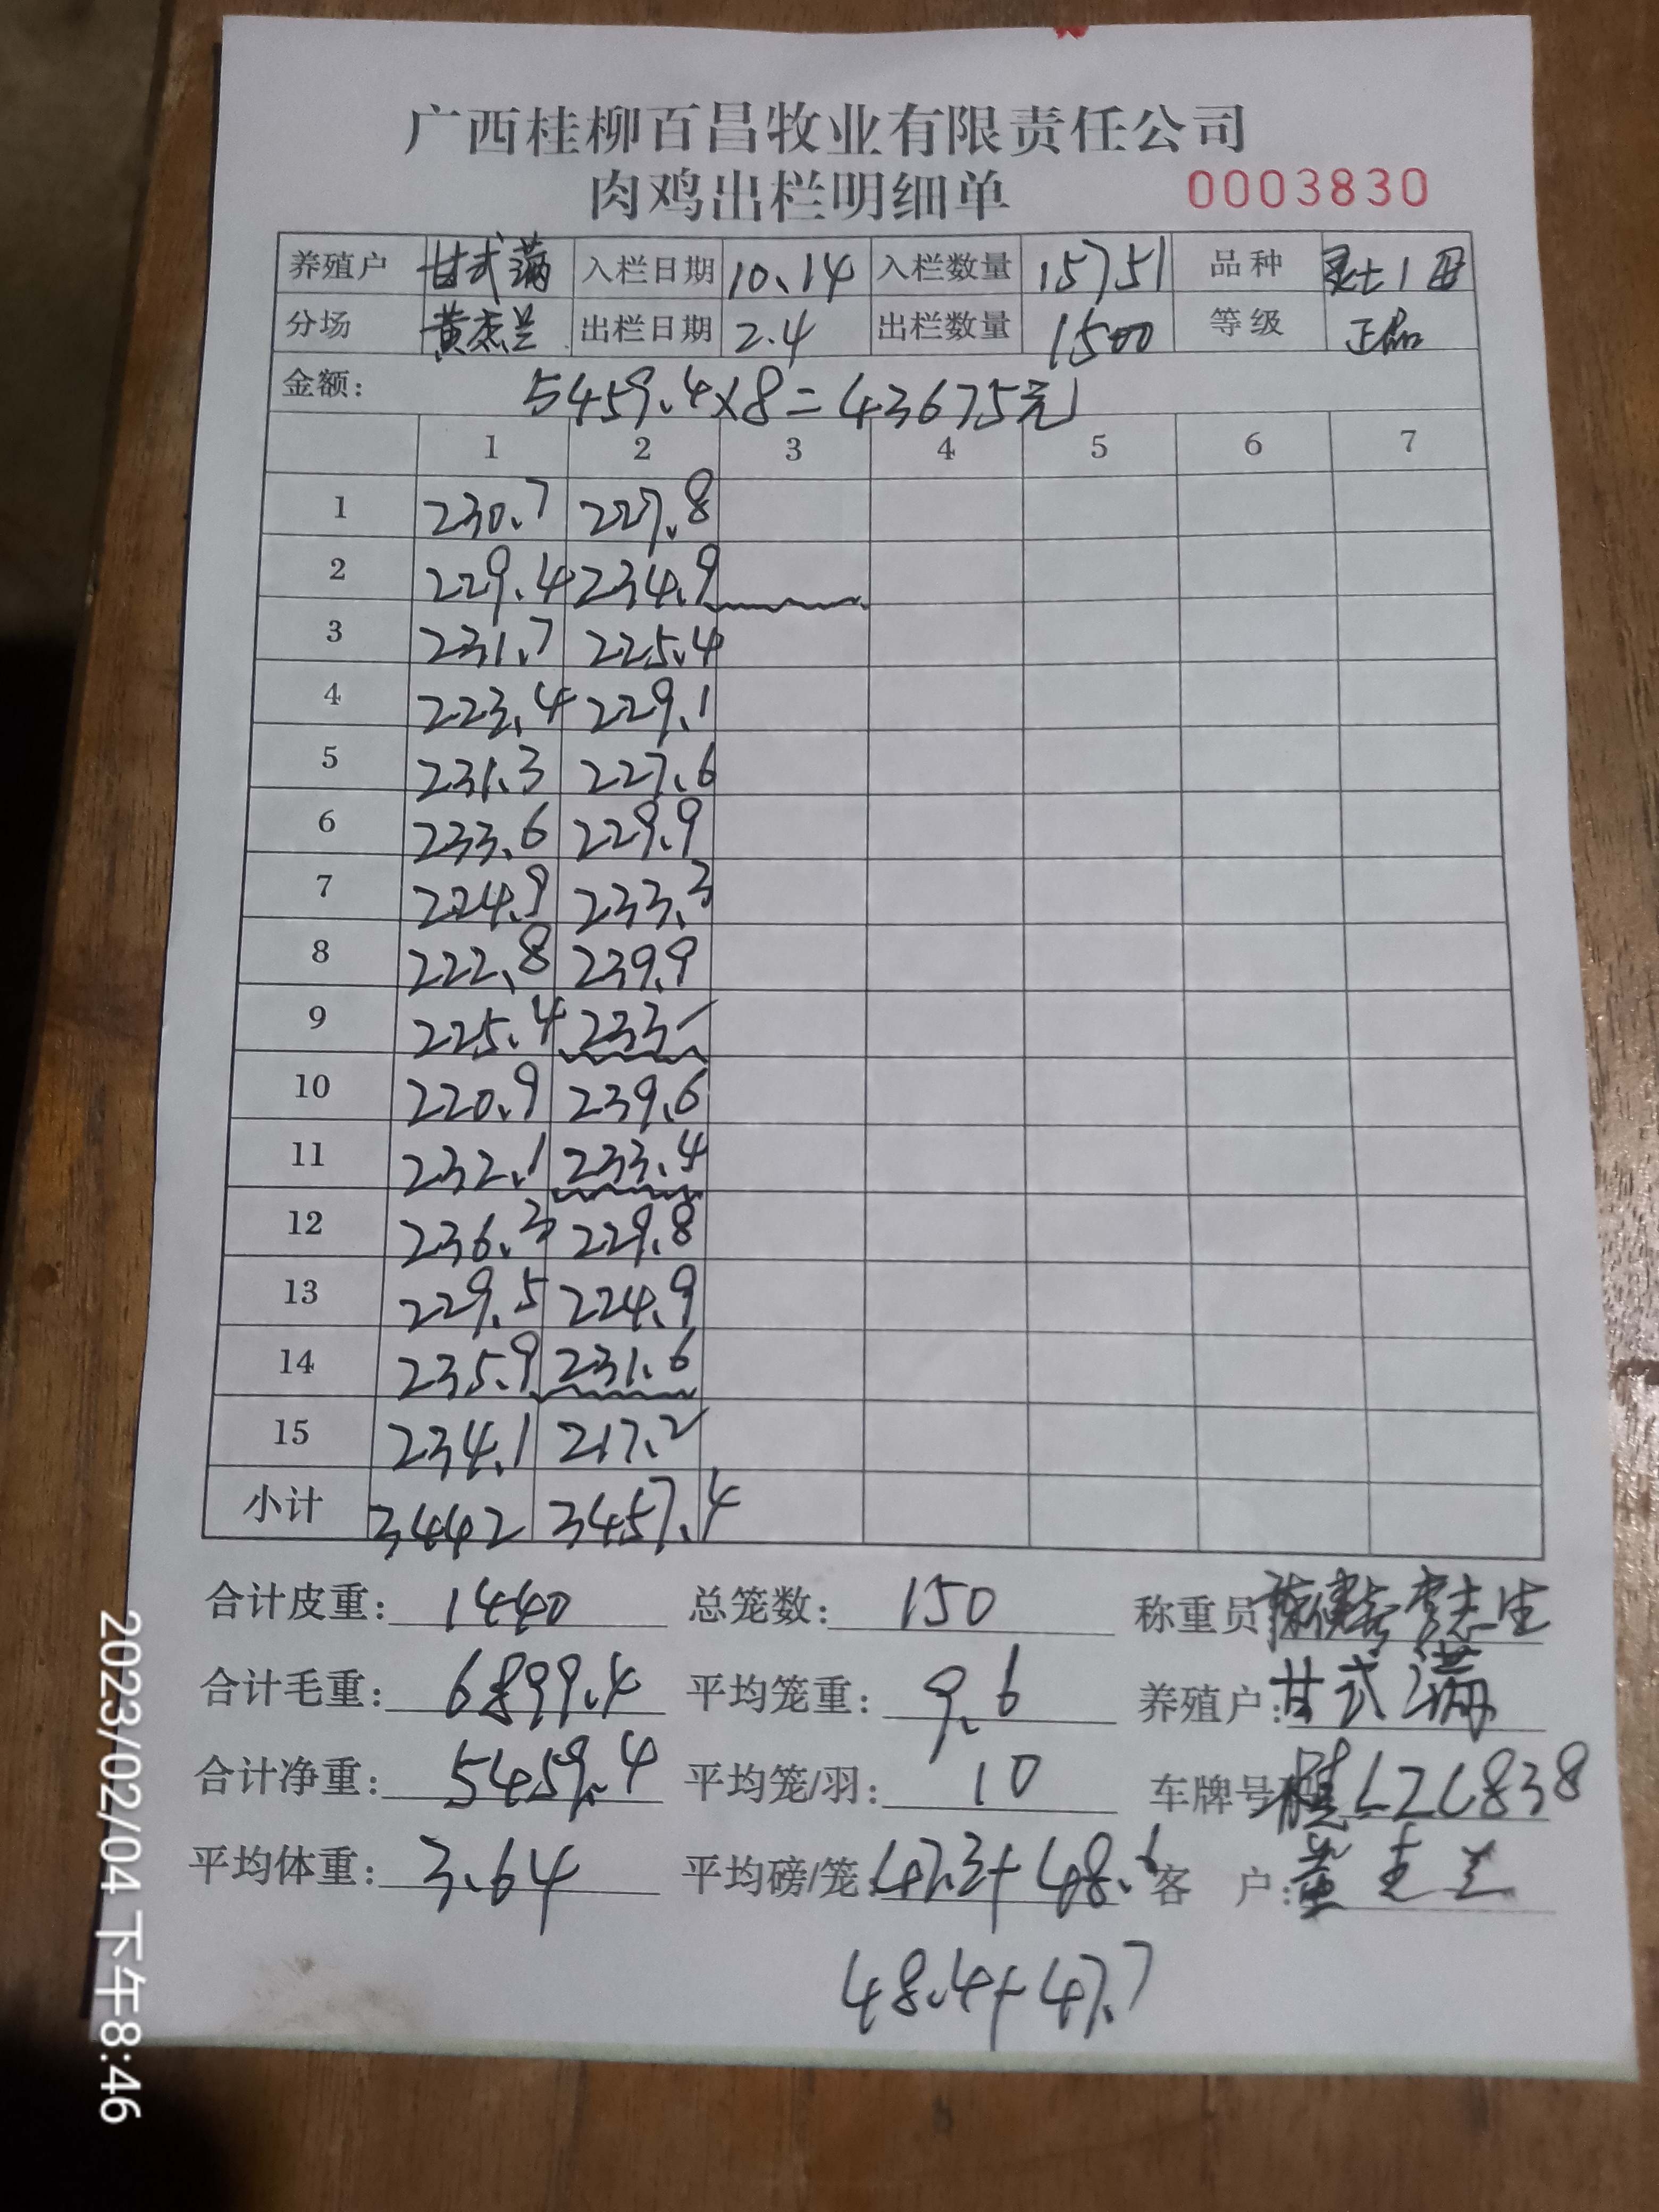 广西桂柳百昌牧业有限责任公司
肉鸡出栏明细单 0003830
养殖户 甘式满 入栏日期 10.14 入栏数量 15751 品种 灵士1母
分场 黄杰兰 出栏日期 2.4 出栏数量 1500 等级 正品
金额: 5459.4×8=43675元
1 2 3 4 5 6 7
1 230.7 227.8
2 229.4 234.9
3 231.7 225.4
4 223.4 229.1
5 231.3 227.6
6 233.6 229.9
7 224.9 233.3
8 222.8 239.9
9 225.4 233-
10 220.9 239.6
11 232.1 233.4
12 236.3 229.8
13 229.5 224.9
14 235.9 231.6
15 234.1 217.2
小计 3442 3457.4
合计皮重: 1440 总笼数: 150 称重员
合计毛重: 6899.4 平均笼重: 9.6 养殖户: 甘式满
合计净重: 5459.4 平均笼/羽: 10 车牌号码 LZC838
平均体重: 3.64 平均磅/笼: 47.3+48.6 客 户: 黄 兰
48.4+47.7
2023/02/04 下午8:46